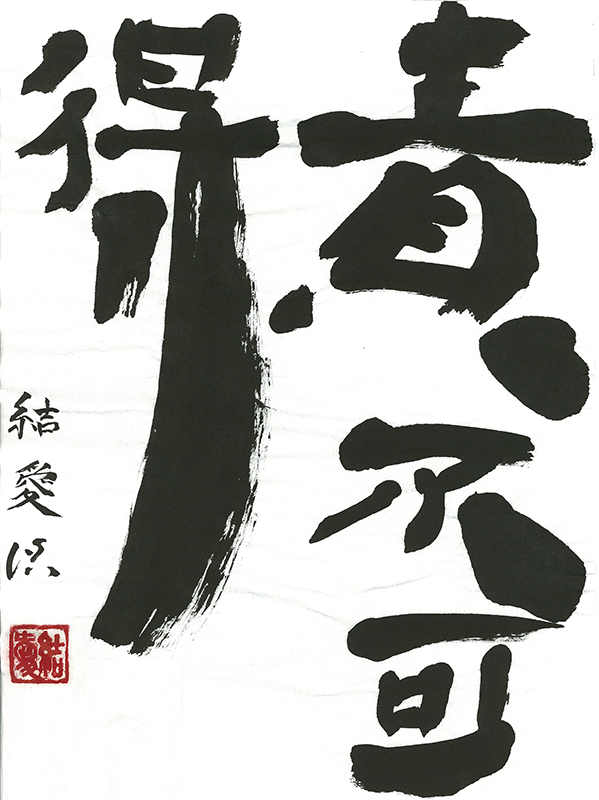 貴不可
得
結愛
結愛